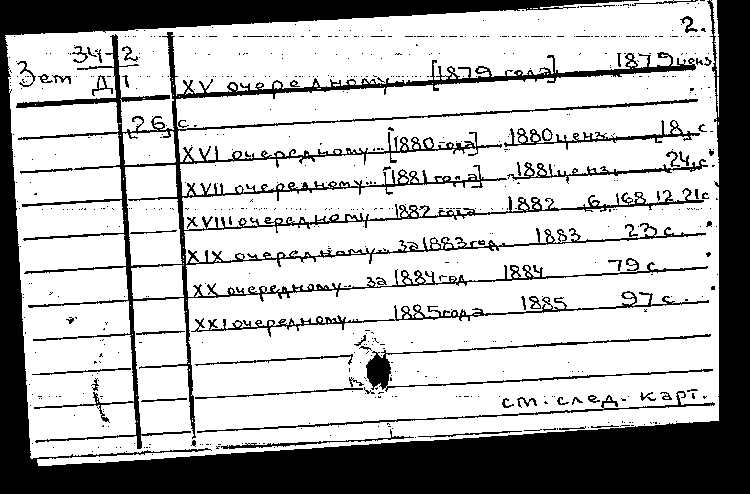 2.
Зем 34-2
Д1
XV очередному... [1879 года] 1879 ценз.
26 с.
XVI очередному... [1880 года] 1880 ценз. 18 с
XVII очередному... [1881 года] 1881 ценз. 24 с.
XVIII очередному... 1882 года 1882 6, 168, 12, 21 с
XIX очередному... за 1883 год. 1883 23 с.
XX очередному... за 1884 год 1884 79 с.
XXI очередному... 1885 года 1885 97 с.
см. след. карт.